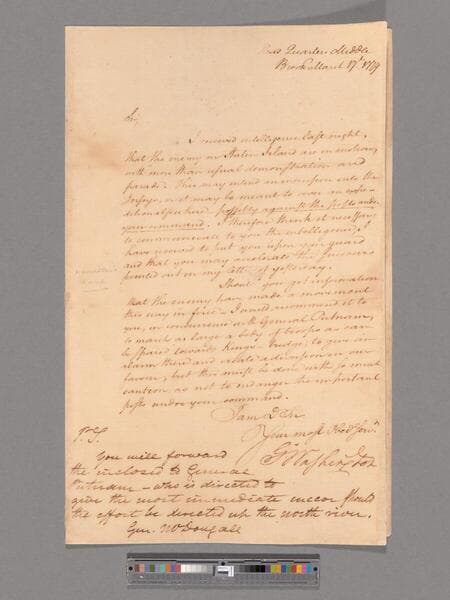 Head Quarters Middle
Brook March 17th 1779
Sir,
I received intelligence last night,
that the enemy on Staten Island are in motion,
with more than usual demonstration and
parade. This may intend an incursion into the
Jerseys, or it may be meant to cover an
expedition elsewhere possibly against the posts under
your command. I therefore think it necessary
to communicate to you the intelligence I
have received to put you upon your guard
and that you may accelerate the
pointed out in my letter of yesterday.
Should you get information
that the enemy have made a movement
this way in force - I would recommend it to
you, in concurrence with General Putnam,
to march as large a body of troops as can
be spared towards Kings-bridge to give an
alarm there and create a diversion in our
favour, but this must be done with so much
caution as not to endanger the important
posts under your command.
I am D Sir
Your most Obed Serv.
G Washington
P.S.
You will forward
the inclosed to General
Putnam - who is directed to
give the most immediate succor should
the effort be directed up the North river.
Gen. McDougall